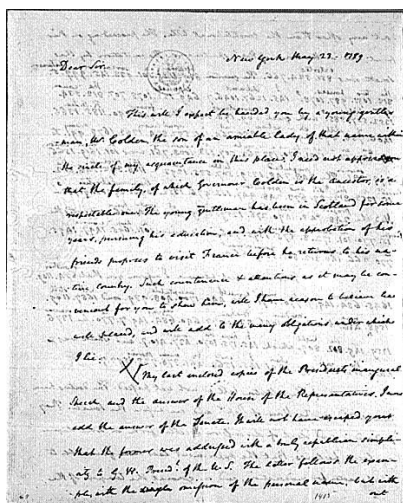 New York May 23. 1789
Dear Sir
This will I expect be handed you by a young gentle
man, Mr Colden, the son of an amiable lady of that name within
the circle of my acquaintance in this place. I need not apprize you
that the family, of which Governour Colden is the ancestor, is a
respectable one. The young gentleman has been in Scotland for some
years, pursuing his education, and with the approbation of his
friends proposes to visit France before he returns to his na-
tive country. Such countenance & attentions as it may be con-
venient for you to shew him, will I have reason to believe be
well placed, and will add to the many obligations under which
I lie.
My last inclosed copies of the President's inaugural
Speech and the answer of the House of the Representatives. I now
add the answer of the Senate. It will not have escaped you
that the former was addressed with a truly republican simpli-
city to G. W. Presidt. of the U. S. The latter follows the exam-
ple, with the omission of the personal name, but with
out